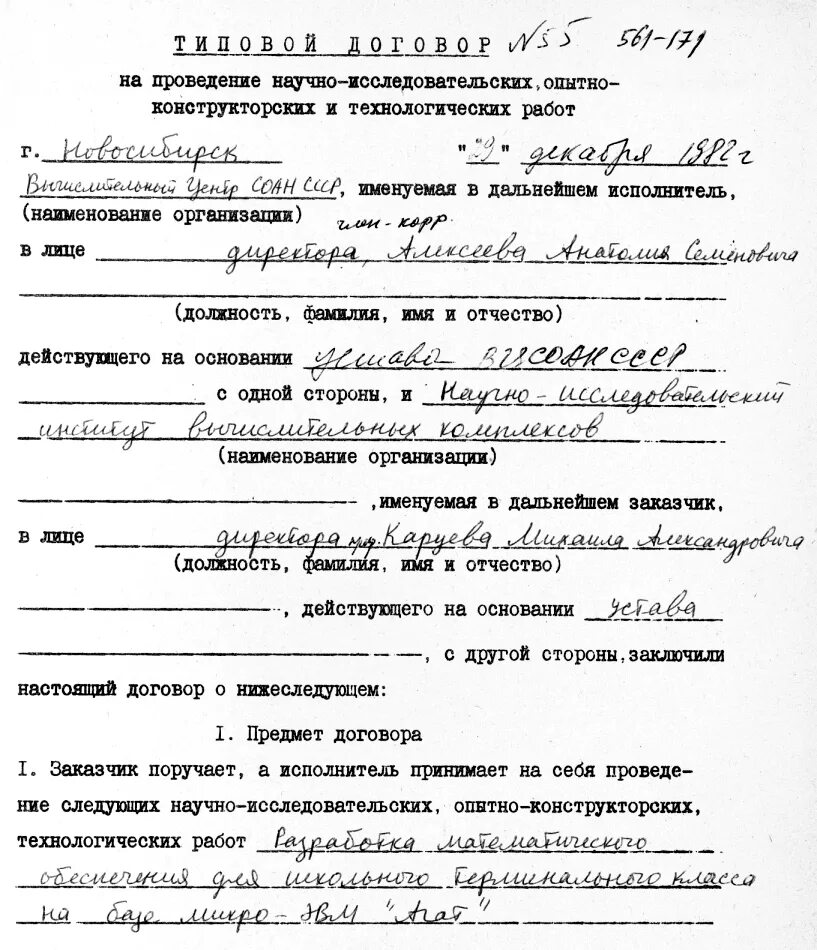 ТИПОВОЙ ДОГОВОР N 55 561-171
на проведение научно-исследовательских, опытно-
конструкторских и технологических работ
г. Новосибирск "29" декабря 1982 г
Вычислительный Центр СОАН СССР, именуемая в дальнейшем исполнитель,
(наименование организации) член-корр.
в лице директора, Алексеева Анатолия Семеновича
(должность, фамилия, имя и отчество)
действующего на основании устава ВЦ СОАН СССР
с одной стороны, и Научно-исследовательский
институт вычислительных комплексов
(наименование организации)
, именуемая в дальнейшем заказчик,
в лице директора Карцева Михаила Александровича
(должность, фамилия, имя и отчество)
, действующего на основании устава
, с другой стороны, заключили
настоящий договор о нижеследующем:
I. Предмет договора
I. Заказчик поручает, а исполнитель принимает на себя проведе-
ние следующих научно-исследовательских, опытно-конструкторских,
технологических работ Разработка математического
обеспечения для школьного терминального класса
на базе микро-ЭВМ "Агат"